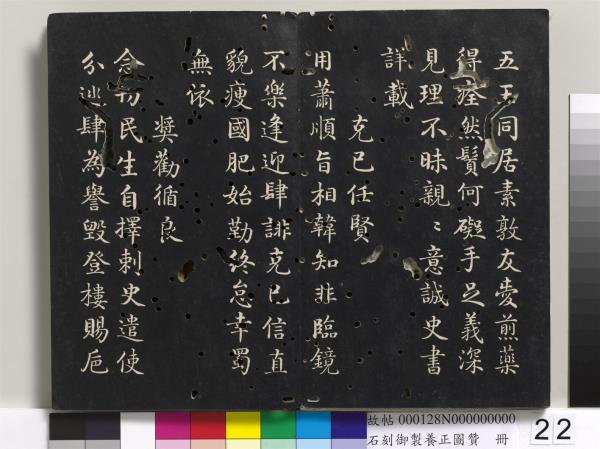 五王同居素敦友愛煎藥
得
然鬚何礙手足義深
見理不昧親〻意誠史書
詳載
克已任賢
用蕭順旨相韓知非臨鏡
不樂逢迎肆誹克已信直
貌瘦國肥始勤終怠幸蜀
無依
奨勸循良
念切民生自擇刺史遣使
分巡肆為譽毀登樓賜巵
故帖 000128N000000000
石刻御製養正圖贊 冊
22